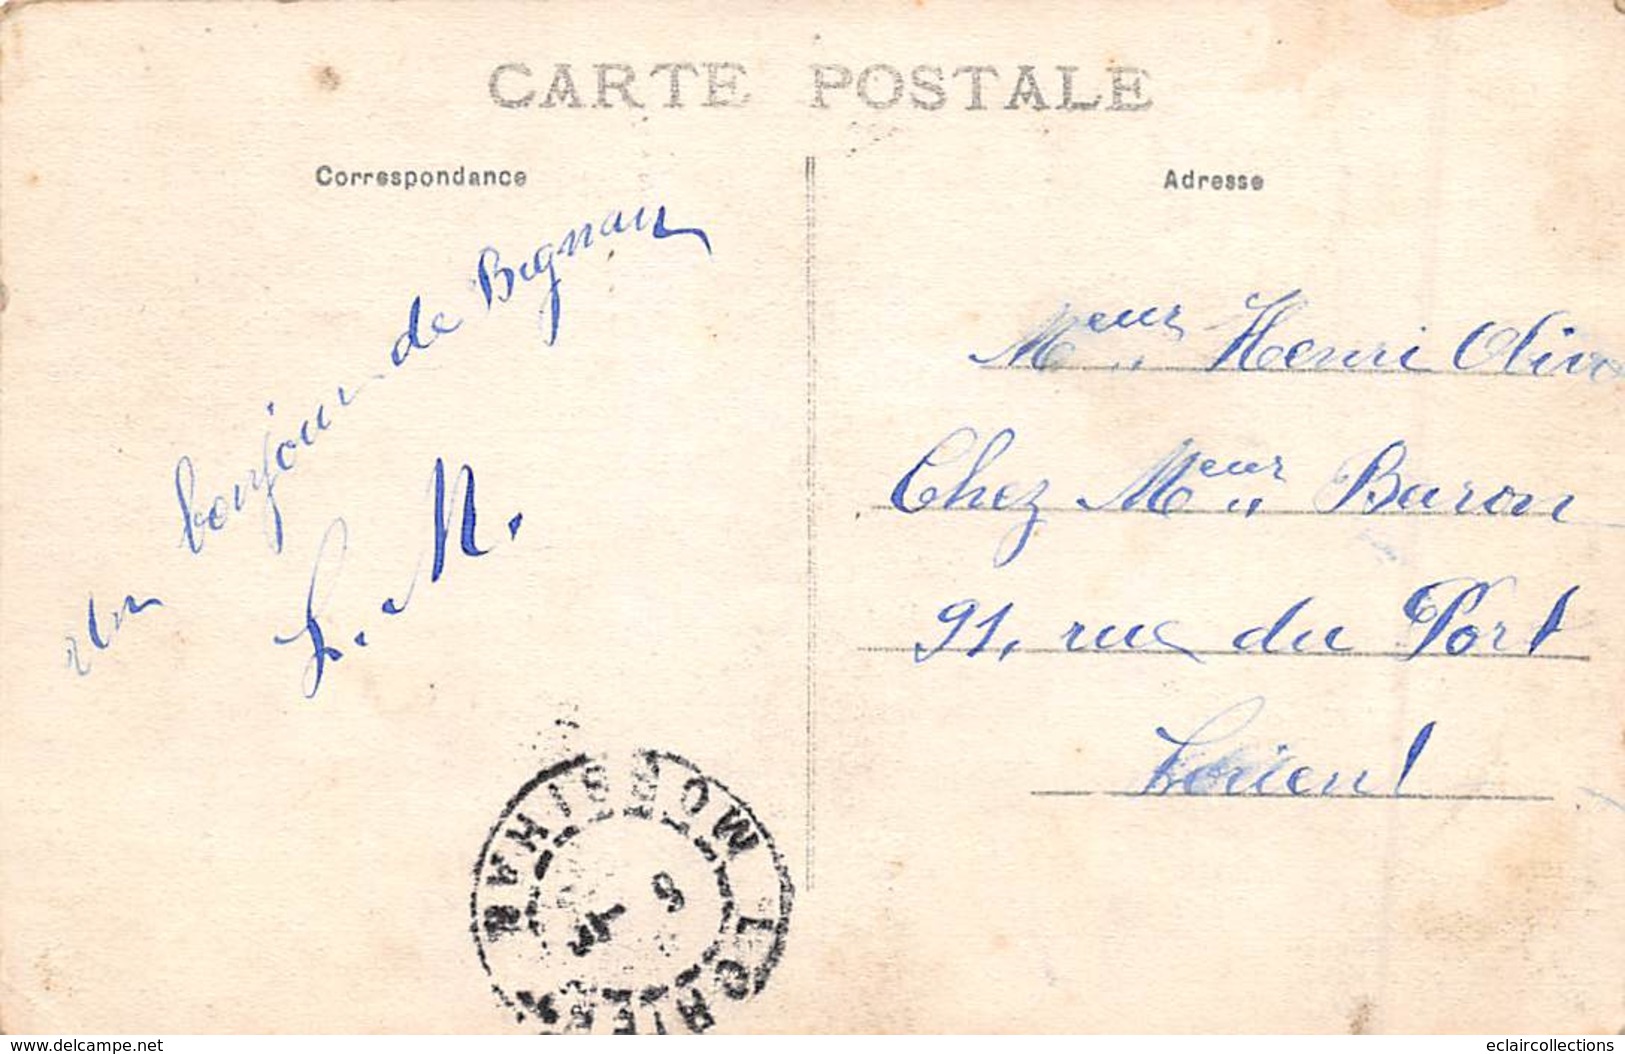 CARTE POSTALE
Correspondance
Adresse
un bonjour de Bignan
L. M.
Meur Henri Oliv
Chez Meur Baron
91, rue du Port
Lorient
LORIENT MORBIHAN
www.delcampe.net
eclaircollections